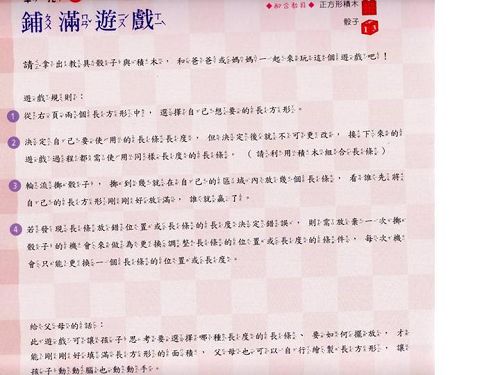 ◆配合教具◆ 正方形積木
骰子
鋪滿遊戲
請拿出教具骰子與積木，和爸爸或媽媽一起來玩這個遊戲吧！
遊戲規則：
1 從右頁兩個長方形中，選擇自己想要的長方形。
2 決定自己要使用的長條長度，但決定後就不可更改，接下來的
遊戲過程都需使用同樣長度的長條。（請利用積木組合長條）
3 輪流擲骰子，擲到幾就在自己的區域內放幾個長條，看誰先將
自己的長方形剛剛好放滿，誰就贏了。
4 若發現長條放錯位置或長條的長度決定錯誤，則需放棄一次擲
骰子的機會來做為更換調整長條的位置或長度的條件，每次機
會只能更換一個長條的位置或長度。
給父母的話：
此遊戲可讓孩子思考要選擇哪種長度的長條、要如何擺放，才
能剛剛好填滿長方形的面積，父母也可以自行繪製長方形，讓
孩子動動腦也動動手。